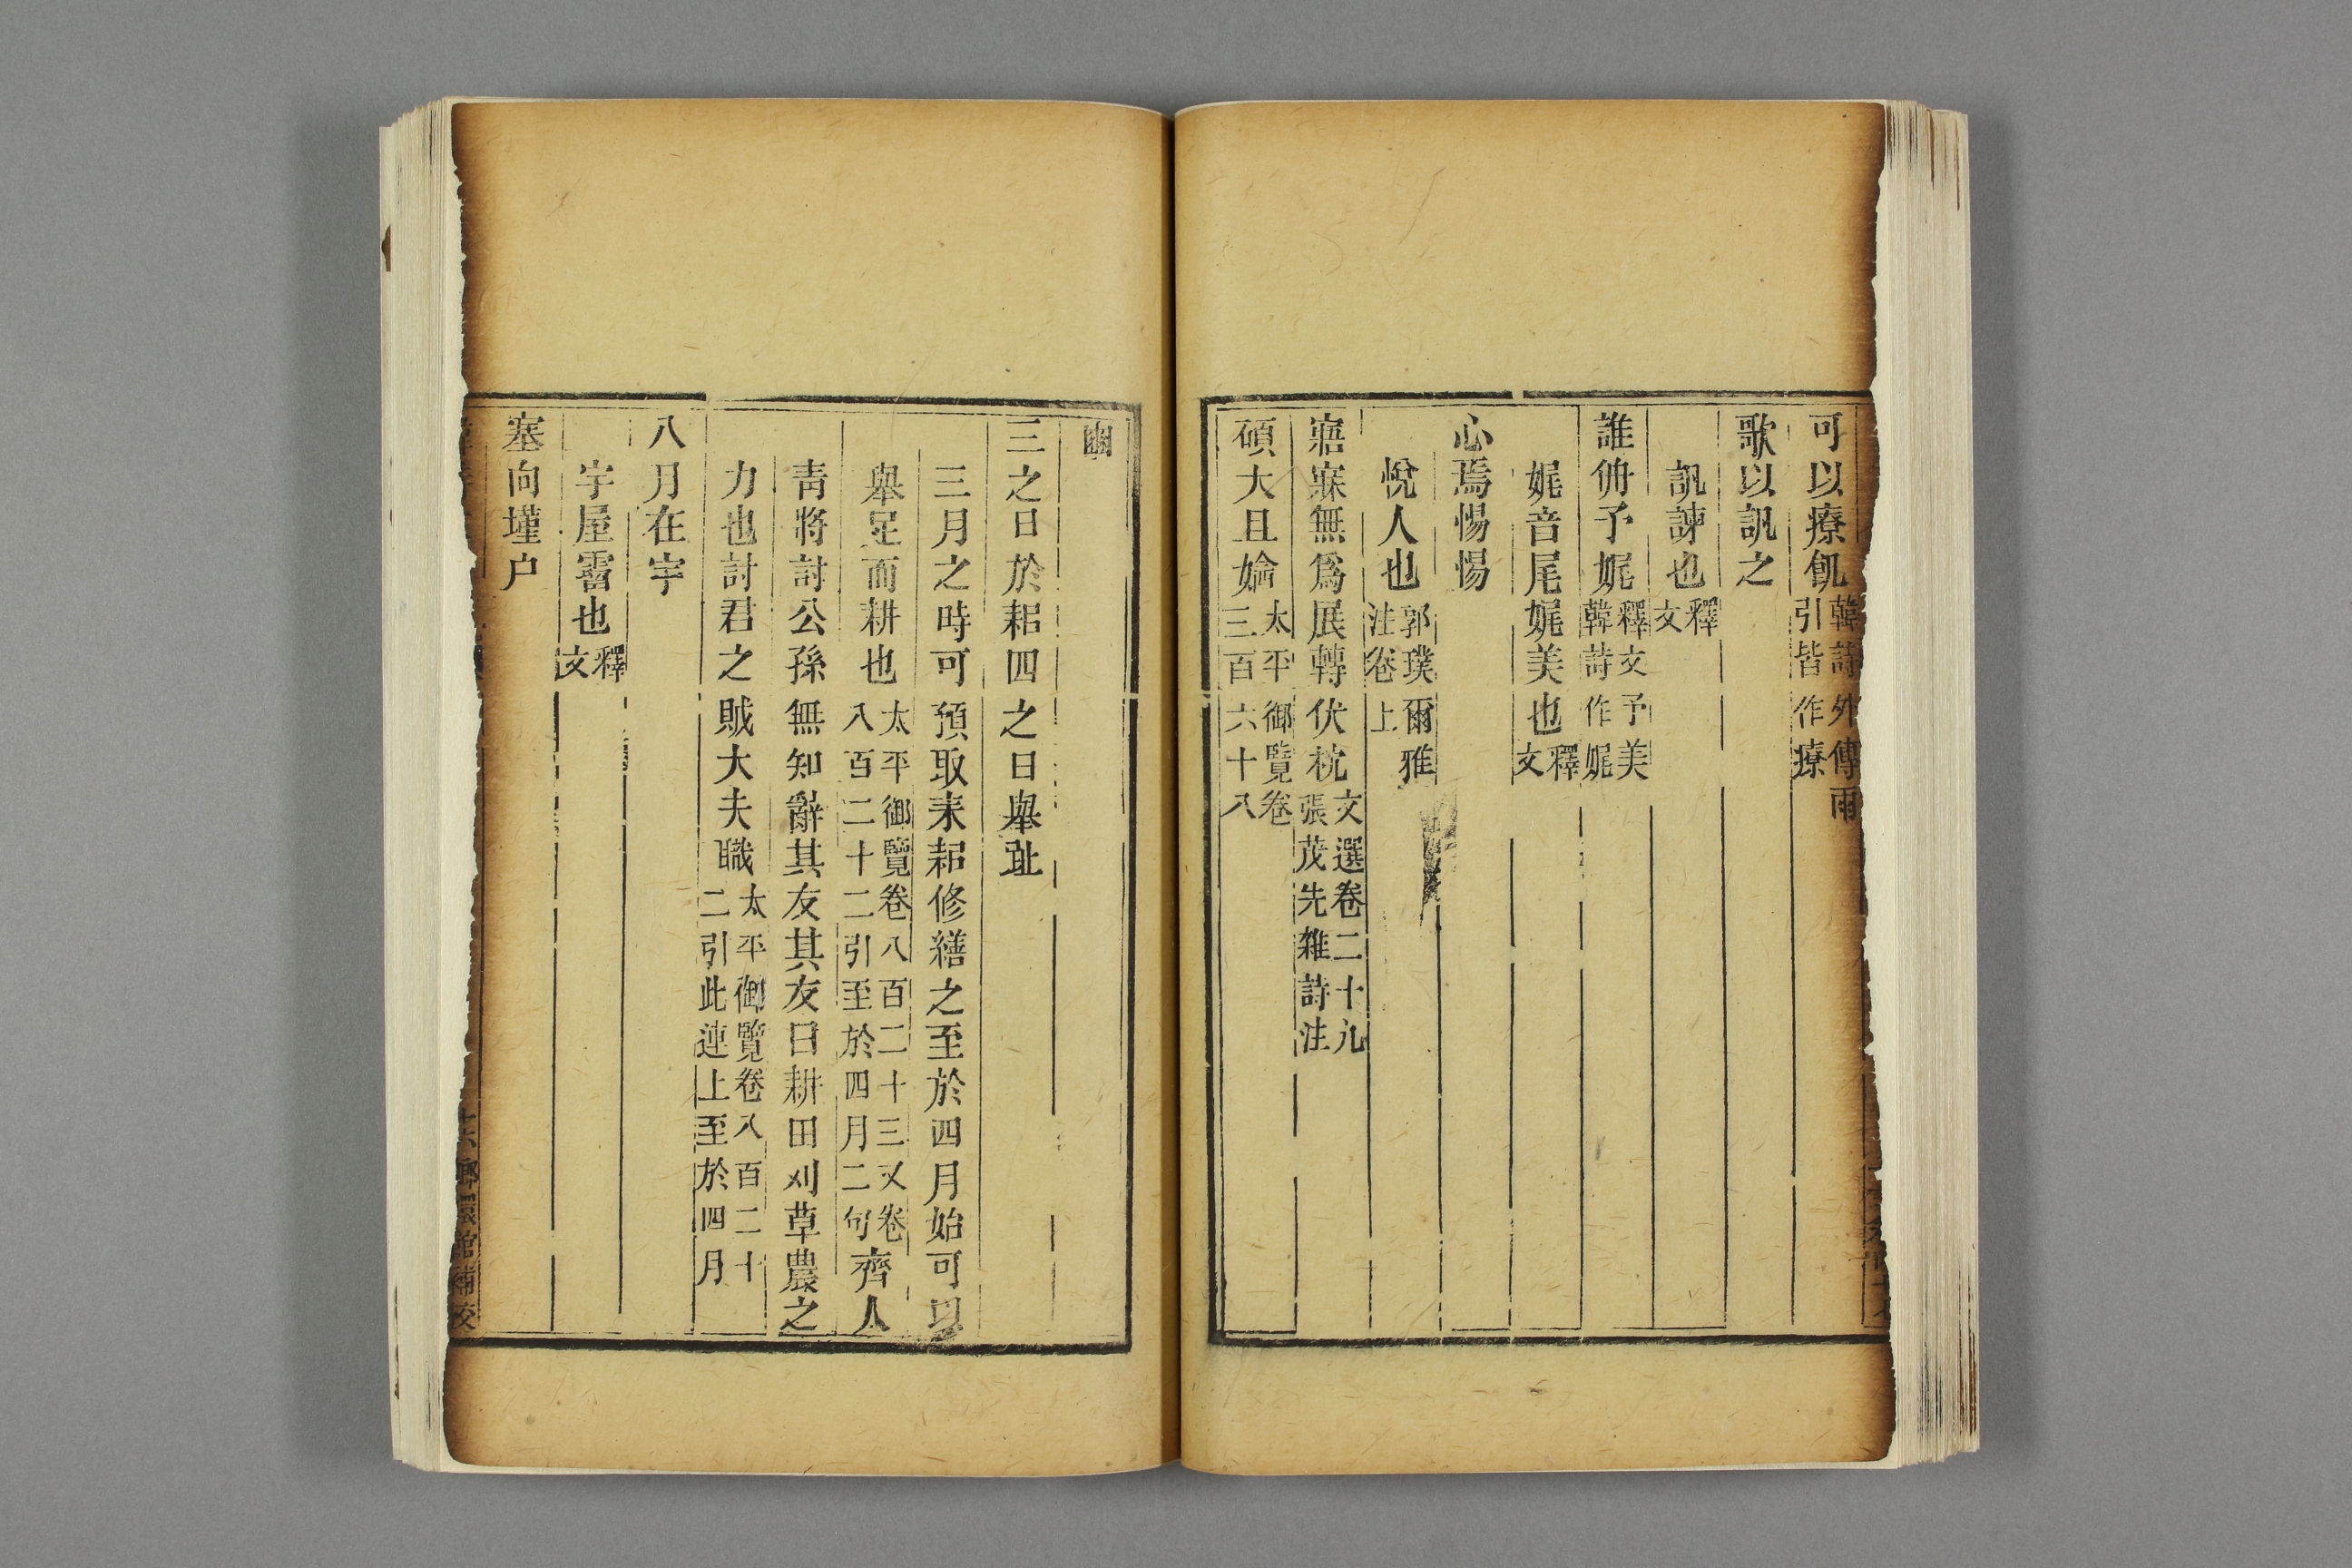 可以療飢韓詩外傳兩引皆作療
歌以訊之
訊諫也釋文
誰侜予娓釋文予美韓詩作娓
娓音尾娓美也釋文
心焉惕惕
悅人也郭璞爾雅注卷上
寤寐無爲展轉伏枕文選卷二十九張茂先雜詩注
碩大且㜝太平御覽卷三百六十八
豳
三之日於耜四之日舉趾
三月之時可預取耒耜修繕之至於四月始可以
舉足而耕也太平御覽卷八百二十三又卷八百二十二引至於四月二句齊人
靑將討公孫無知辭其友其友曰耕田刈草農之
力也討君之賊大夫職太平御覽卷八百二十二引此連上至於四月
八月在宇
宇屋霤也釋文
塞向墐户
十六 嫏嬛館補校